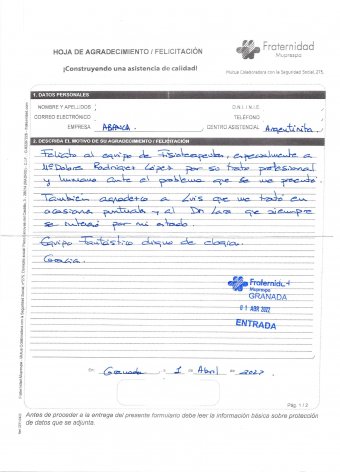 HOJA DE AGRADECIMIENTO / FELICITACIÓN
¡Construyendo una asistencia de calidad!
Fraternidad
Muprespa
Mutua Colaboradora con la Seguridad Social, 275
1. DATOS PERSONALES
NOMBRE Y APELLIDOS
D.N.I./N.I.E.
CORREO ELECTRÓNICO
TELÉFONO
EMPRESA ABANCA
CENTRO ASISTENCIAL Argentinita
2. DESCRIBA EL MOTIVO DE SU AGRADECIMIENTO / FELICITACIÓN
Felicito al equipo de Fisioterapeutas, especialmente a
Mª Dolores Rodriguez López por su trato profesional
y humano ante el problema que se me presentó
También agradezco a Luis que me trató en
ocasiones puntuales y al Dr que siempre
se interesó por mi estado.
Equipo Fantástico digno de elogio.
Gracias.
Fraternidad
Muprespa
GRANADA
01 ABR 2022
ENTRADA
Granada 1 Abril 2022
Pág. 1 / 2
Antes de proceder a la entrega del presente formulario debe leer la información básica sobre protección
de datos que se adjunta.